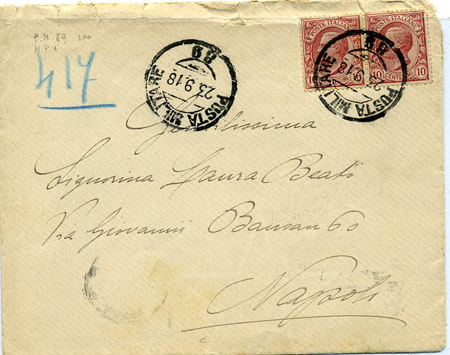 P.M. 89 100
M.P.1
417
POSTA MILITARE 89
23.9.18
POSTE ITALIANE
10
POSTA MILITARE 89
23.9.18
Gentilissima
Signorina Laura Beati
Via Giovanni Bausan 60
Napoli